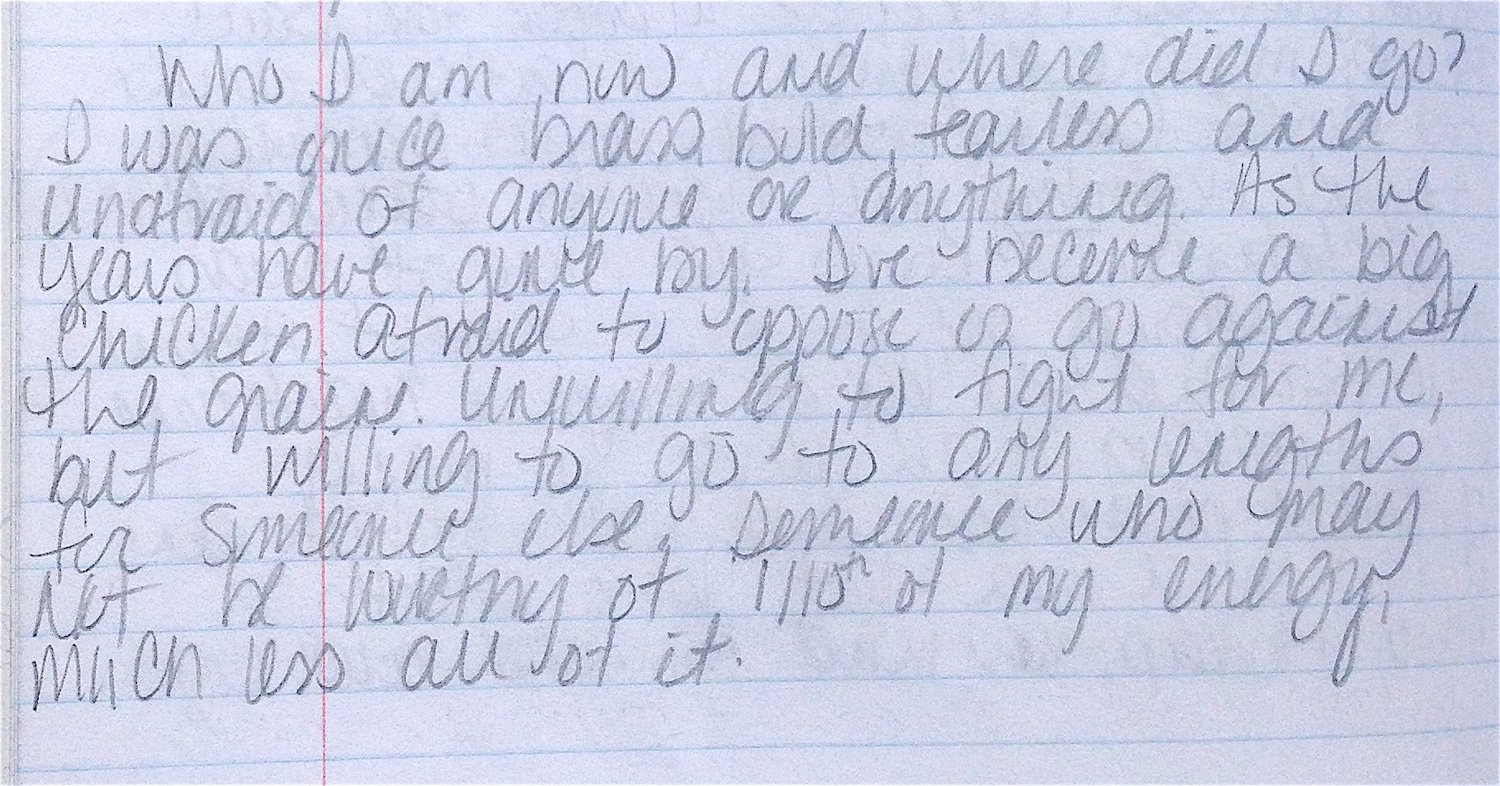 Who I am now and where did I go?
I was once brass, bold, fearless and
unafraid of anyone or anything. As the
years have gone by, I've become a big
chicken. Afraid to oppose or go against
the grain. Unwilling to fight for me,
but willing to go to any lengths
for someone else. Someone who may
Not be worthy of 1/10th of my energy,
much less all of it.